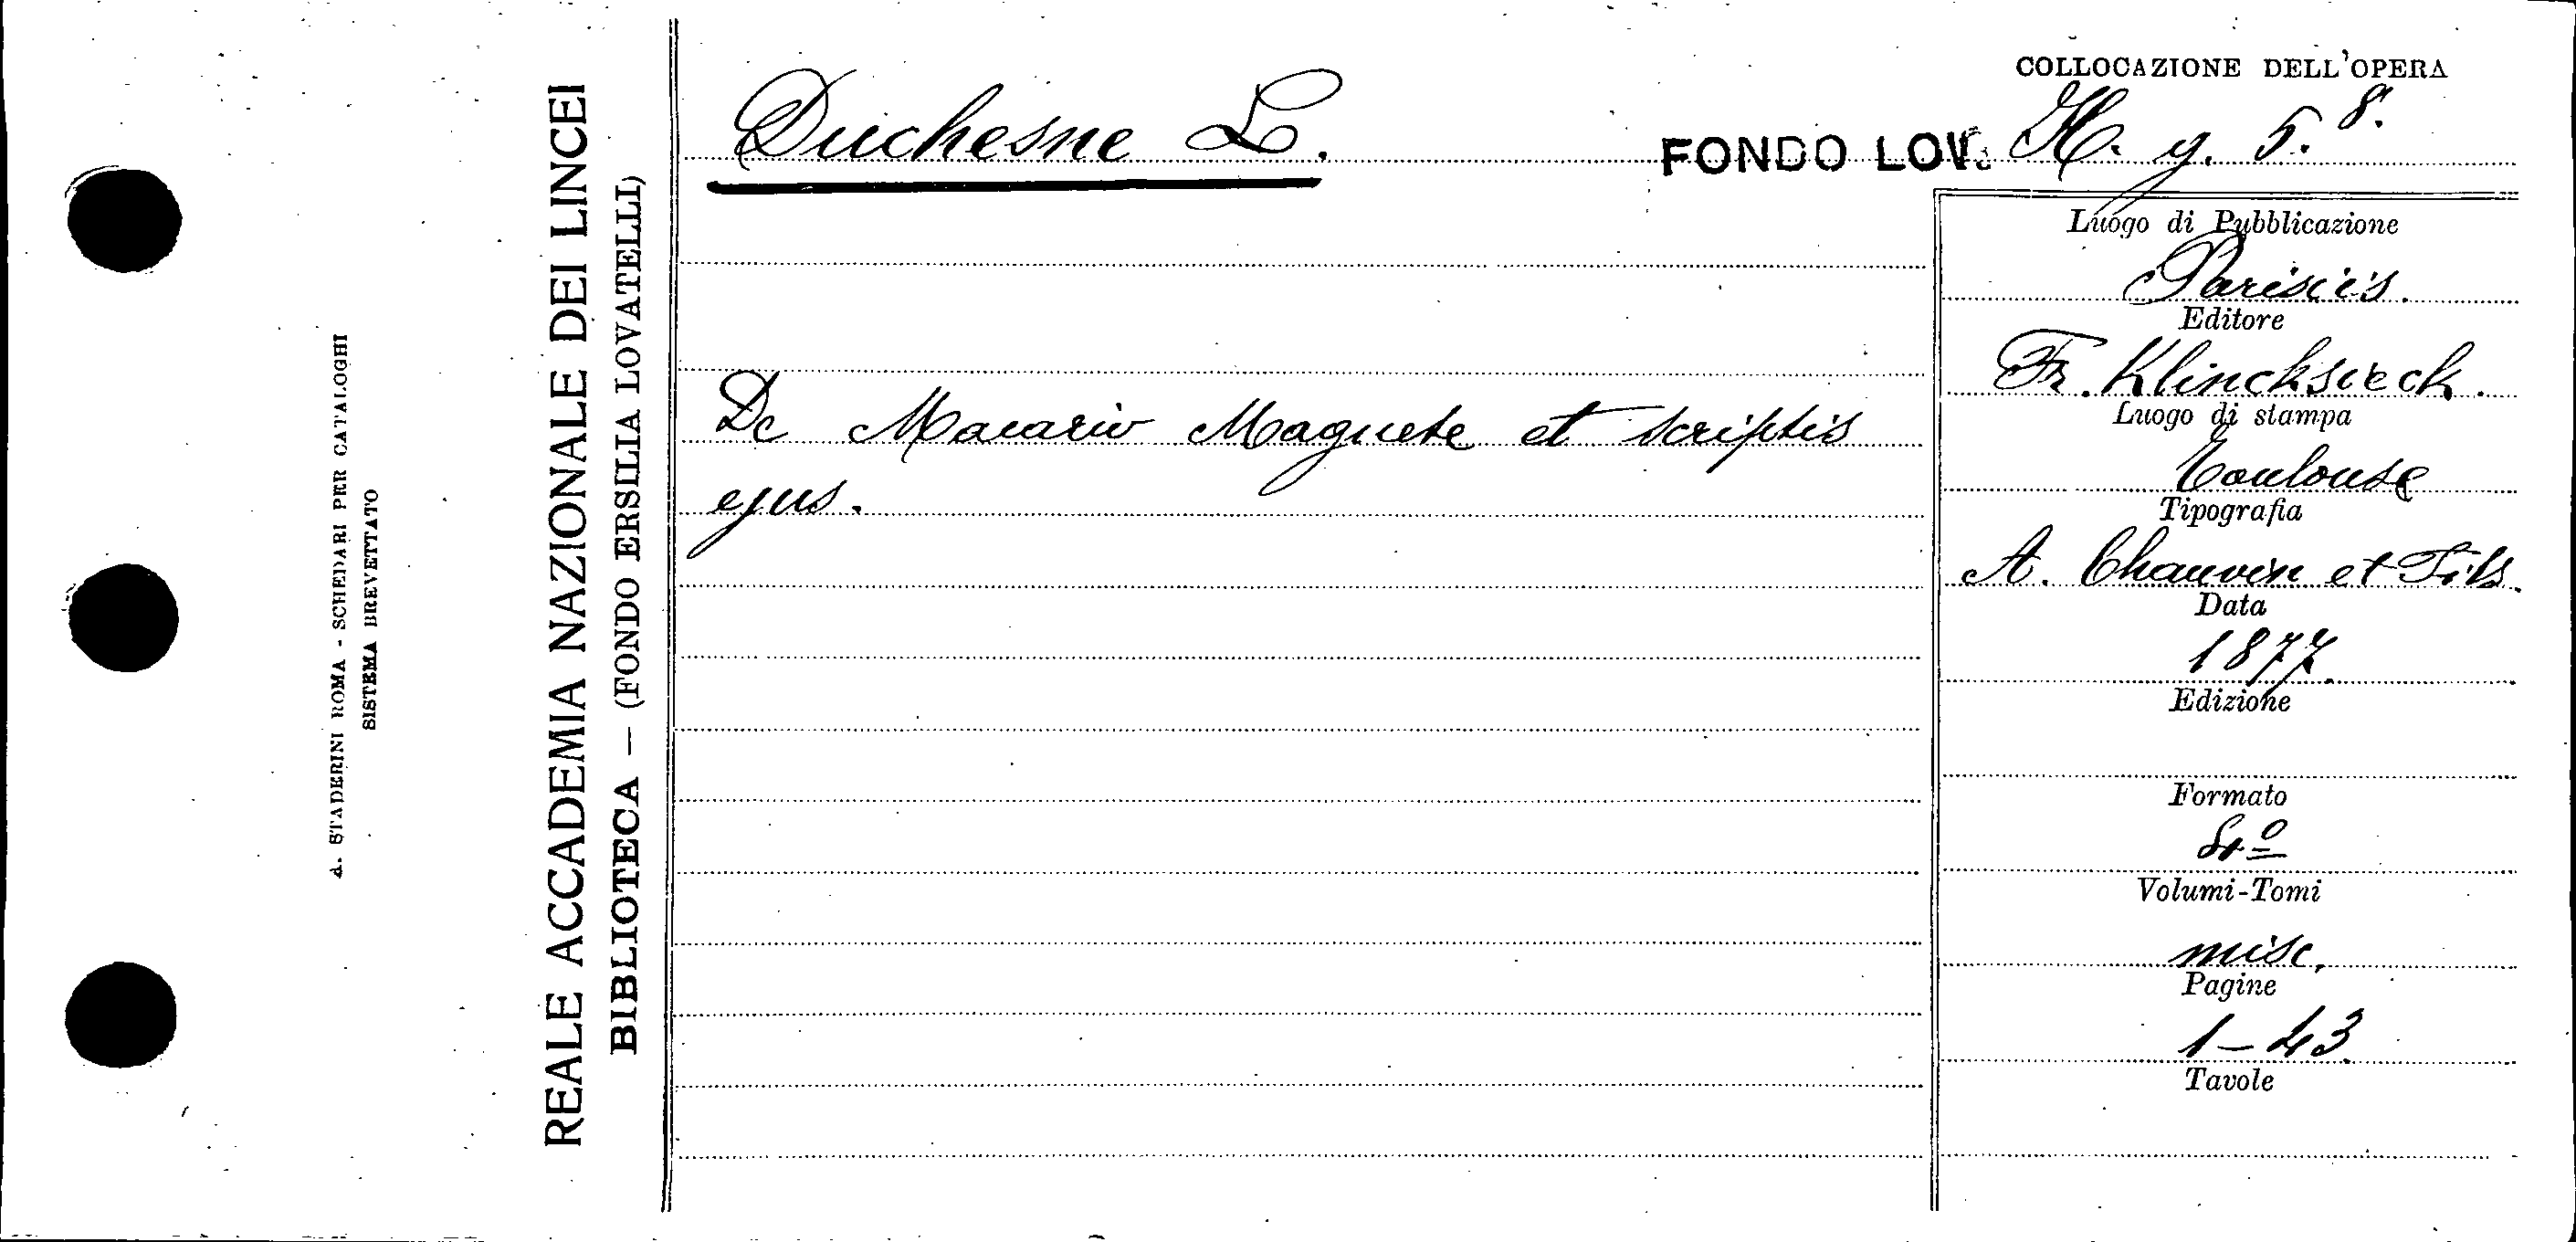 A. STADERINI ROMA - SCHEDARI PER CATALOGHI
SISTEMA BREVETTATO
REALE ACCADEMIA NAZIONALE DEI LINCEI
BIBLIOTECA — (FONDO ERSILIA LOVATELLI)
Duchesne L.
De Macario Magnete et scriptis
ejus.
COLLOCAZIONE DELL'OPERA
FONDO LOV. H. y. 5. 8.
Luogo di Pubblicazione
Parisiis.
Editore
Fr. Klincksieck.
Luogo di stampa
Toulouse
Tipografia
A. Chauvin et Fils.
Data
1877.
Edizione
Formato
4º
Volumi-Tomi
misc.
Pagine
1-43.
Tavole